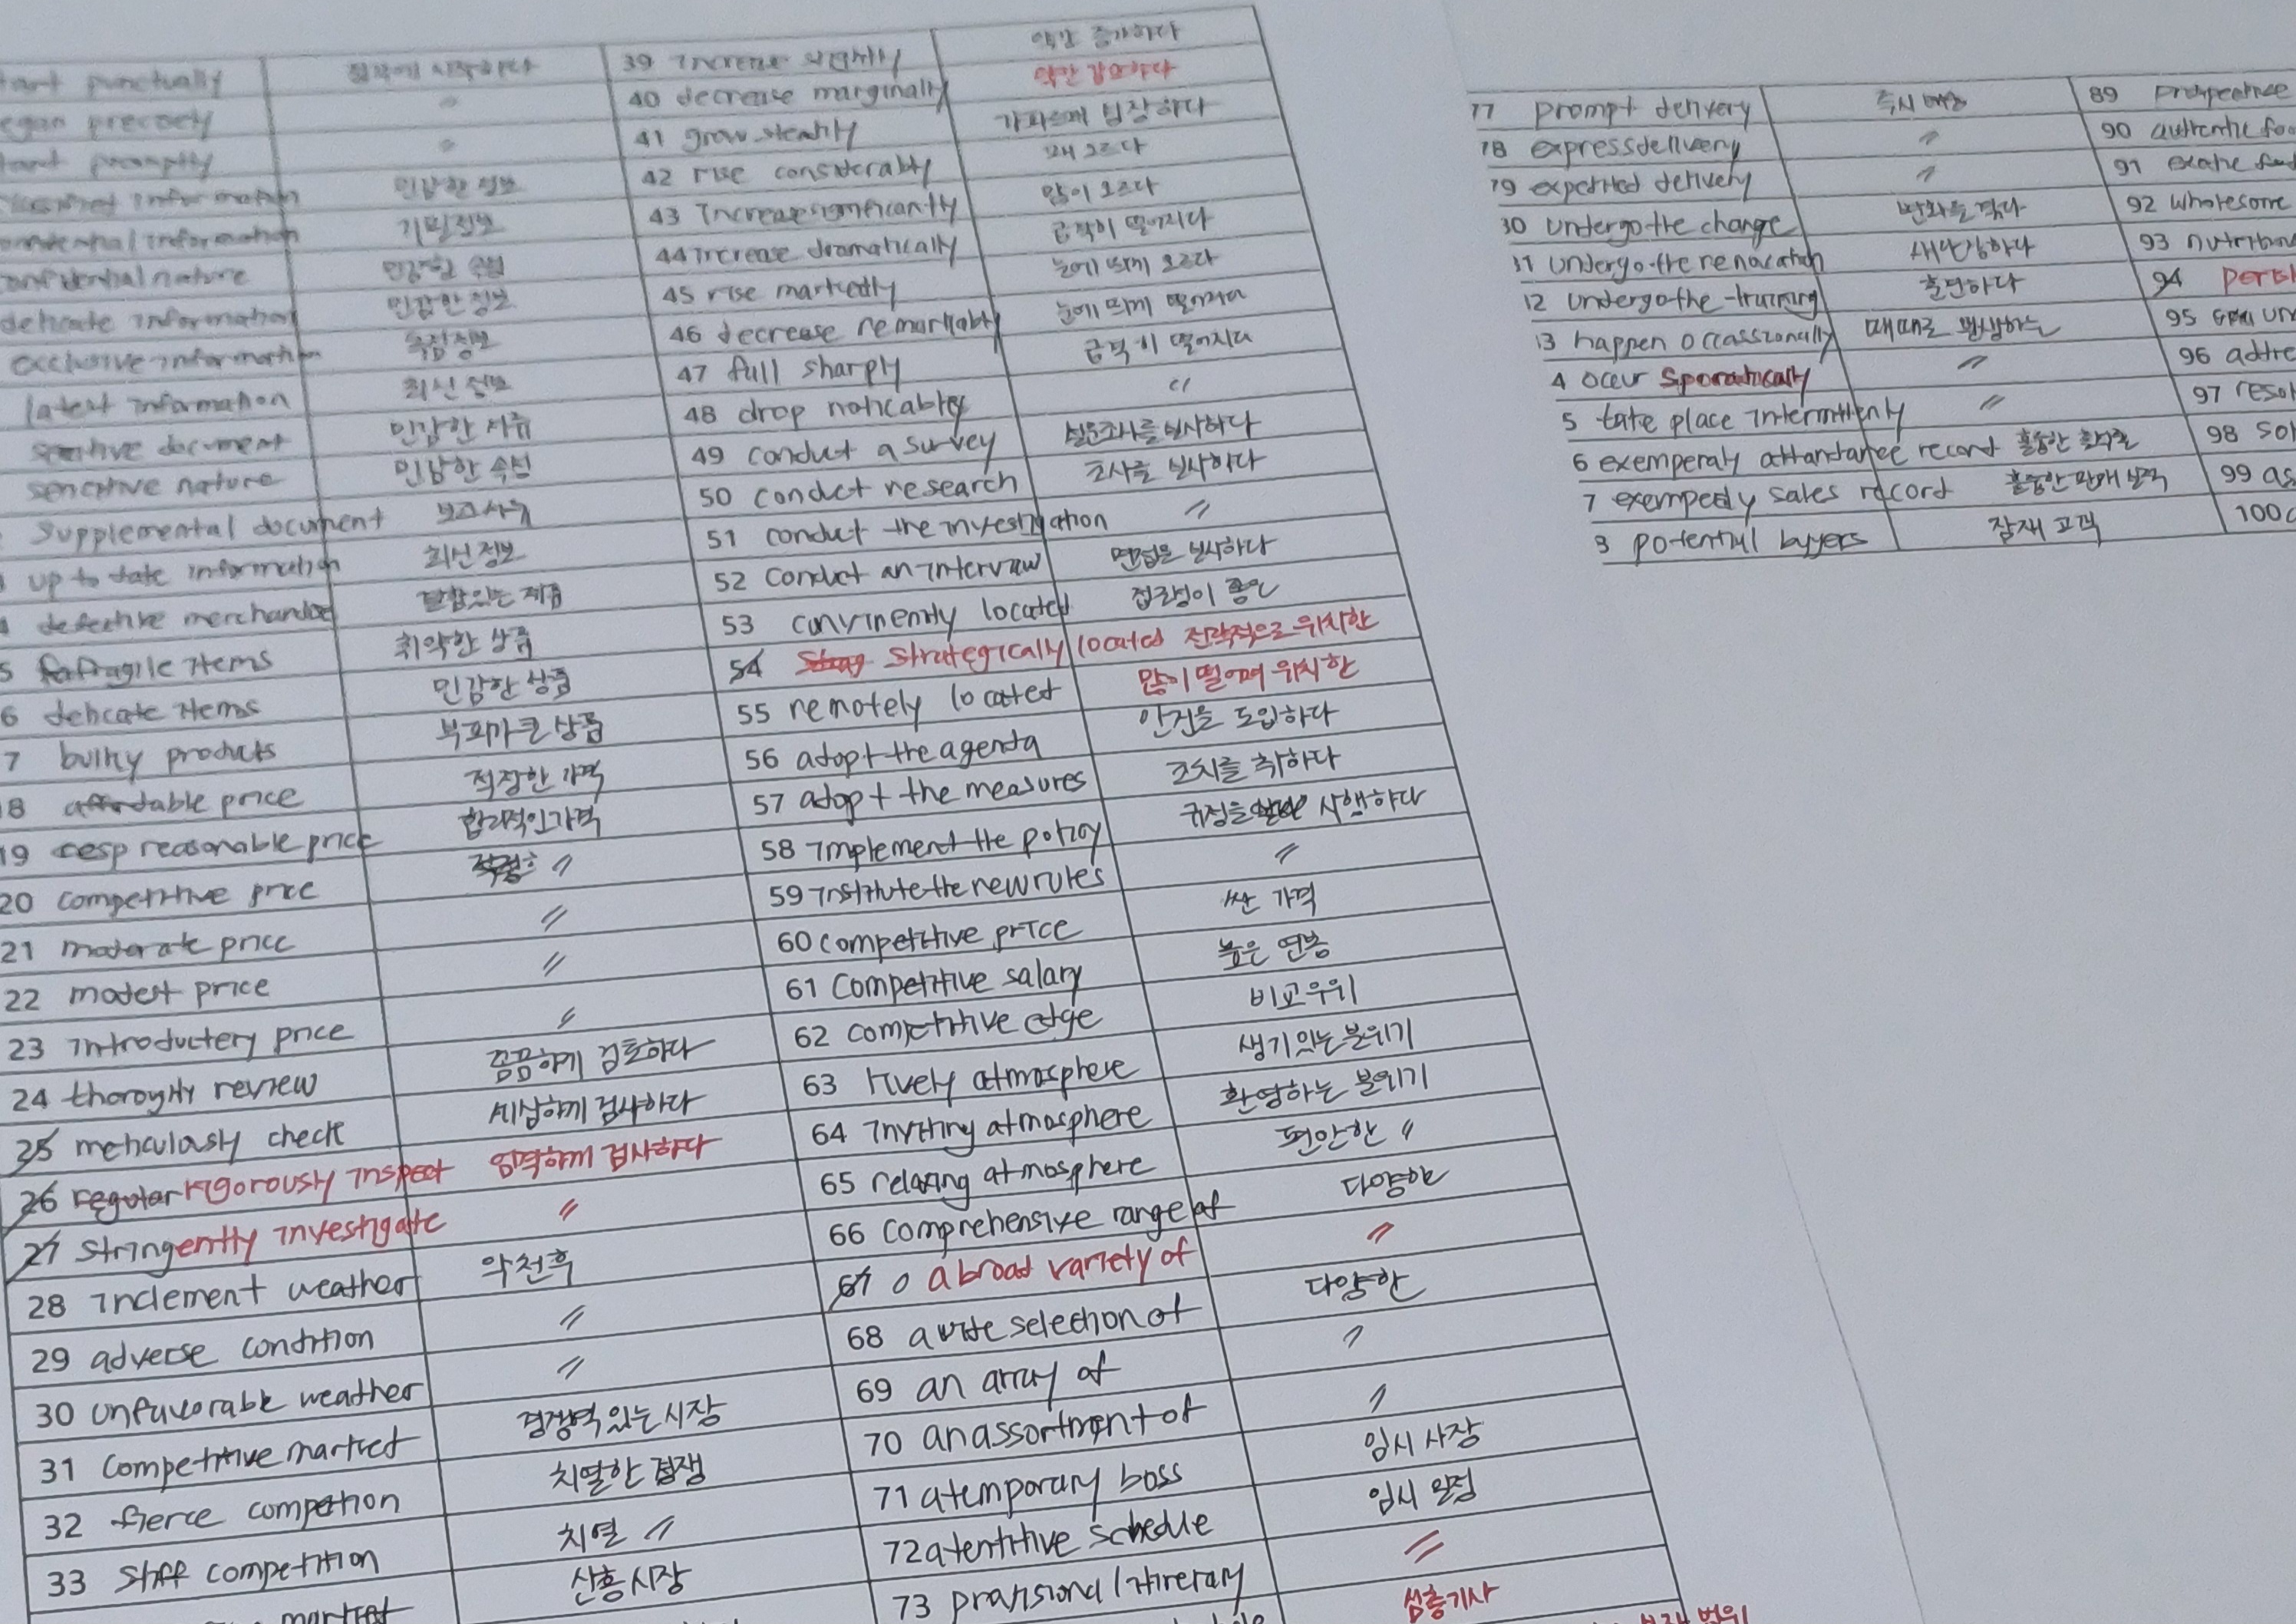 tart punctually 정각에 시작하다
egan precisely 〃
tart promptly 〃
information 민감한 정보
information 기밀정보
nature 민감한 속성
delicate information 민감한 정보
exclusive information 독점정보
latest information 최신 정보
document 민감한 서류
sencitive nature 민감한 속성
supplemental document 보고서류
up to date information 최신 정보
defective merchandise 결함있는 제품
5 fragile items 취약한 상품
6 delicate items 민감한 상품
7 bulky products 부피가 큰 상품
18 affordable price 적장한 가격
19 reasonable price 합리적인 가격
20 competitive price 〃
21 moderate price 〃
22 modest price 〃
23 introductery price 〃
24 thoroughly review 꼼꼼하게 검토하다
25 check 세심하게 검사하다
26 rigorously inspect 엄격하게 검사하다
27 stringently investigate 〃
28 inclement weather 악천후
29 adverse condition 〃
30 unfavorable weather 〃
31 competitive market 경쟁력 있는 시장
32 fierce competion 치열한 경쟁
33 stiff competition 치열 〃
market 신흥시장
39 increase
40 decrease marginally 약간 감소하다
41 grow steadily 가파르게 성장하다
42 rise considerably 꽤 오르다
43 increase significantly 많이 오르다
44 increase dramatically 급격히 떨어지다
45 rise markedly 눈에 띄게 오르다
46 decrease remarkably 눈에 띄게 떨어지다
47 full sharply 급격히 떨어지다
48 drop noticably 〃
49 conduct a survey 설문조사를 실시하다
50 conduct research 조사를 실시하다
51 conduct the investigation 〃
52 conduct an interview 면접을 실시하다
53 convinently located 접근성이 좋은
54 strategically located 전략적으로 위치한
55 remotely located 많이 떨어져 위치한
56 adopt the agenda 안건을 도입하다
57 adopt the measures 조치를 취하다
58 implement the policy 규정을 시행하다
59 institute the new rules 〃
60 competitive price 싼 가격
61 competitive salary 높은 연봉
62 competitive edge 비교우위
63 lively atmosphere 생기있는 분위기
64 inviting atmosphere 환영하는 분위기
65 relaxing atmosphere 편안한 〃
66 comprehensive range of 다양한
67 a broad variety of 〃
68 a wide selection of 다양한
69 an array of 〃
70 an assortment of 〃
71 a temporary boss 임시 사장
72 schedule 임시 일정
73 〃
심층기사
범위
77 prompt delivery 즉시 배송
78 express delivery 〃
79 delivery 〃
30 undergo the change 변화를 겪다
31 undergo the renovation 새단장하다
12 undergo the training 훈련하다
13 happen occassionally 때때로 발생하는
4 occur sporatically 〃
5 take place 〃
6 record 훌륭한 출석률
7 sales record 훌륭한 판매 실적
3 potential buyers 잠재 고객
89
90 authentic foo
91 exotic food
92 wholesome
93 nutritiou
94 peris
95
96 addre
97 resol
98 sol
99 as
100 c